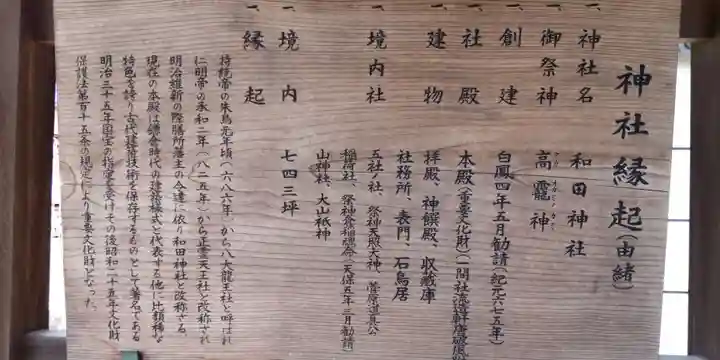 神社縁起(由緒)
一、神社名 和田神社
一、御祭神 高龗神
一、創建 白鳳四年五月勧請(紀元六七五年)
一、社殿 本殿(重要文化財)(一間社流造軒唐破風
一、建物 拝殿、神饌殿、収蔵庫
社務所、表門、石鳥居
一、境内社 五社社、祭神天照大神、菅原道真公
稲荷社、祭神倉稲魂命(天保五年三月勧請)
山神社、大山祇神
一、境内 七四三坪
一、縁起 持統帝の朱鳥元年頃(六八六年)から八大龍王社と呼ばれ
仁明帝の承和二年(八二五年)から正霊天王社と改称され
明治維新の際膳所藩主の令達に依り和田神社と改称さる、
現在の本殿は鎌倉時代の建築様式を代表する他に比類稀な
特色を誇り古代建築技術を保存するものとして著名である
明治三十五年国宝の指定を受けその後昭和二十五年文化財
保護法第百十五条の規定により重要文化財となった。